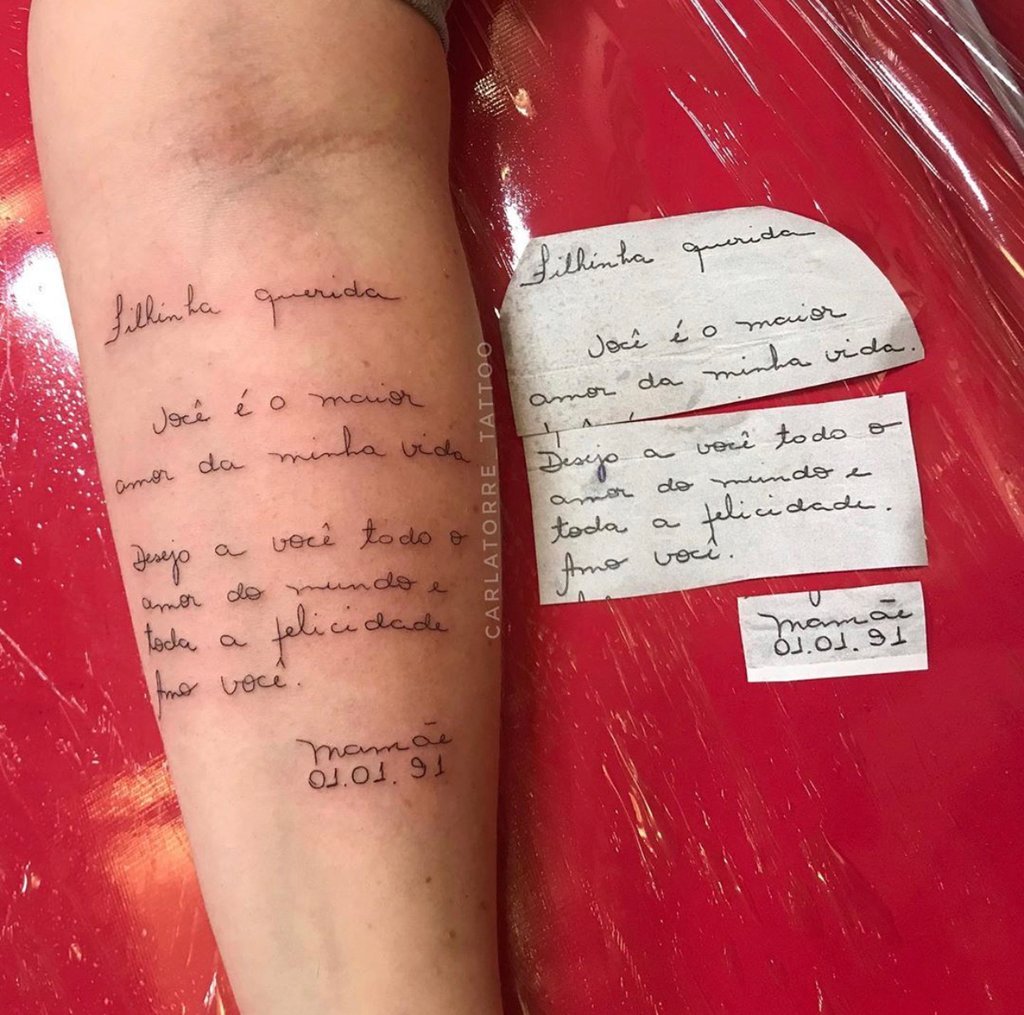 Filhinha querida
Você é o maior
amor da minha vida
Desejo a você todo o
amor do mundo e
toda a felicidade
Amo você.
Mamãe
01.01.91
CARLATORRE TATTOO
Filhinha querida
Você é o maior
amor da minha vida.
Desejo a você todo o
amor do mundo e
toda a felicidade.
Amo você.
Mamãe
01.01.91